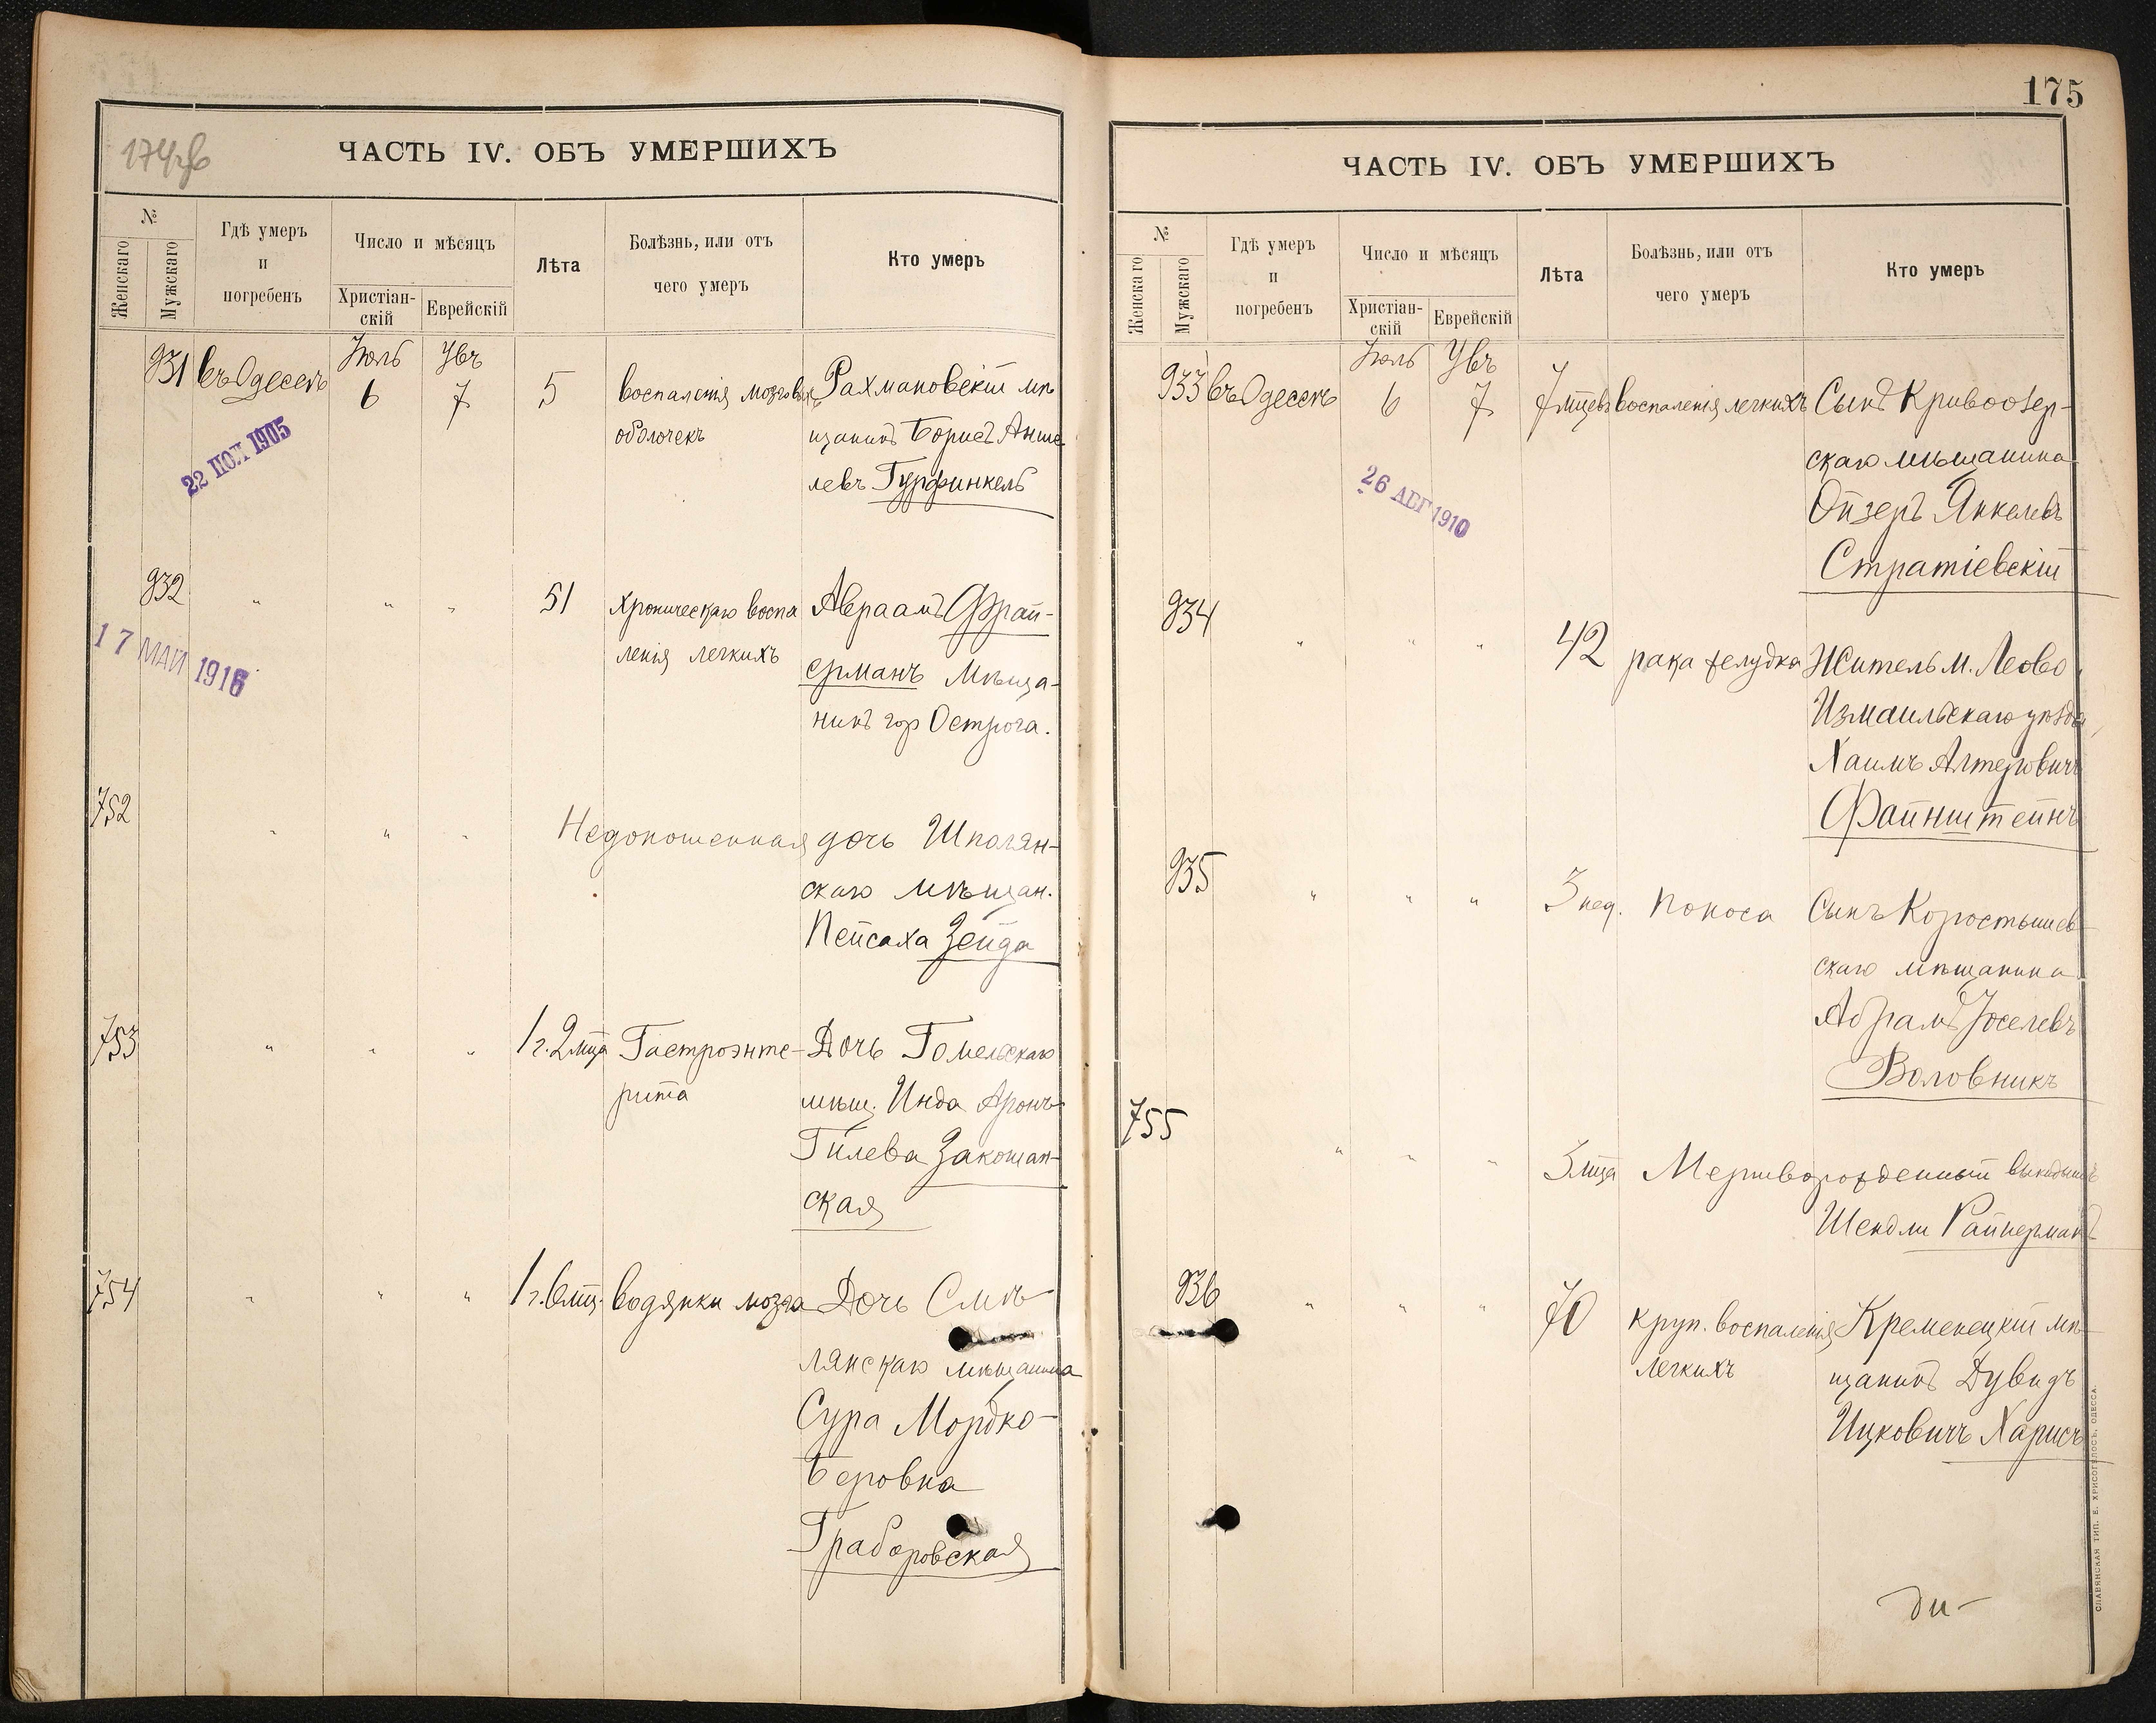 174 об
ЧАСТЬ IV. ОБЪ УМЕРШИХЪ
№
Женскаго
Мужскаго
Гдѣ умеръ
и
погребенъ
Число и мѣсяцъ
Христіан-
скій
Еврейскій
Лѣта
Болѣзнь, или отъ
чего умеръ
Кто умеръ
Іюль Увъ
931 въ Одессѣ 6 7 5 воспаленія мозговых Рахмановскій мѣ
оболочекъ щанинъ Борисъ Анше
левъ Гурфинкель
22 ИЮЛ 1905
932 " " " 51 хроническаго воспа Авраамъ Фрай-
ленія легкихъ ерманъ Мѣща-
нинъ гор Острога.
17 МАЙ 1916
752 " " " Недоношенная дочь Шполян-
скаго мѣщан.
Пейсаха Зейда
753 " " " 1 г. 2 мца Гастроэнте- Дочь Гомельскаго
рита мѣщ. Инда Аронъ
Гилева Закошан-
ская
754 " " " 1 г. 6 мц. водянки мозга Дочь Смѣ
лянскаго мѣщанина
Сура Мордко-
Беровна
Граборовская
175
ЧАСТЬ IV. ОБЪ УМЕРШИХЪ
№
Женскаго
Мужскаго
Гдѣ умеръ
и
погребенъ
Число и мѣсяцъ
Христіан-
скій
Еврейскій
Лѣта
Болѣзнь, или отъ
чего умеръ
Кто умеръ
Іюль Увъ
933 въ Одессѣ 6 7 7 мцевъ воспаленія легкихъ Сынъ Кривоозер-
скаго мѣщанина
Ойзеръ Янкелевъ
Стратіевскій
26 АВГ 1910
934 " " " 42 рака желудка Житель м. Леово
Измаильскаго уѣзда,
Хаимъ Алтеровичъ
Файнштейнъ
935 " " " 3 нед. поноса Сынъ Коростышев-
скаго мѣщанина
Абрамъ Іоселевъ
Воловникъ
755 " " " 3 мца Мертворожденный выкидышъ
Шендли Райнерманъ
936 " " " 70 круп. воспаленія Кременецкій мѣ-
легкихъ щанинъ Дувидъ
Ицковичъ Харисъ
ди-
СЛАВЯНСКАЯ ТИП. Е. ХРИСОГЕЛОСЪ, ОДЕССА.